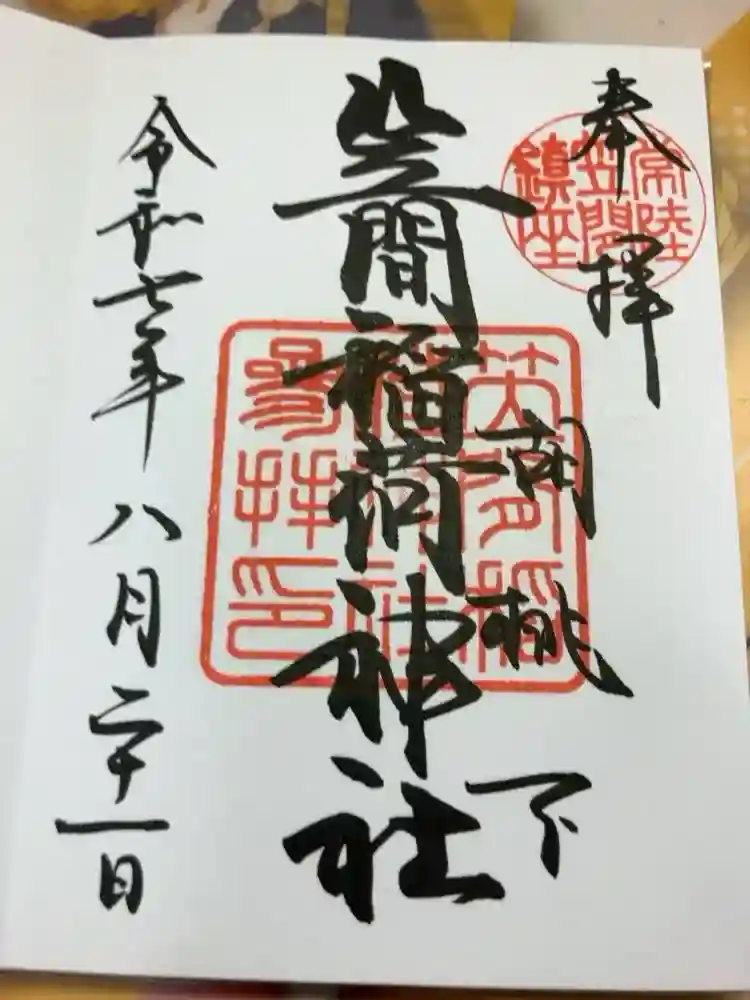 奉拝
常陸
笠間
鎮座
胡桃下
笠間稲荷神社
参拝印
令和七年八月二十一日